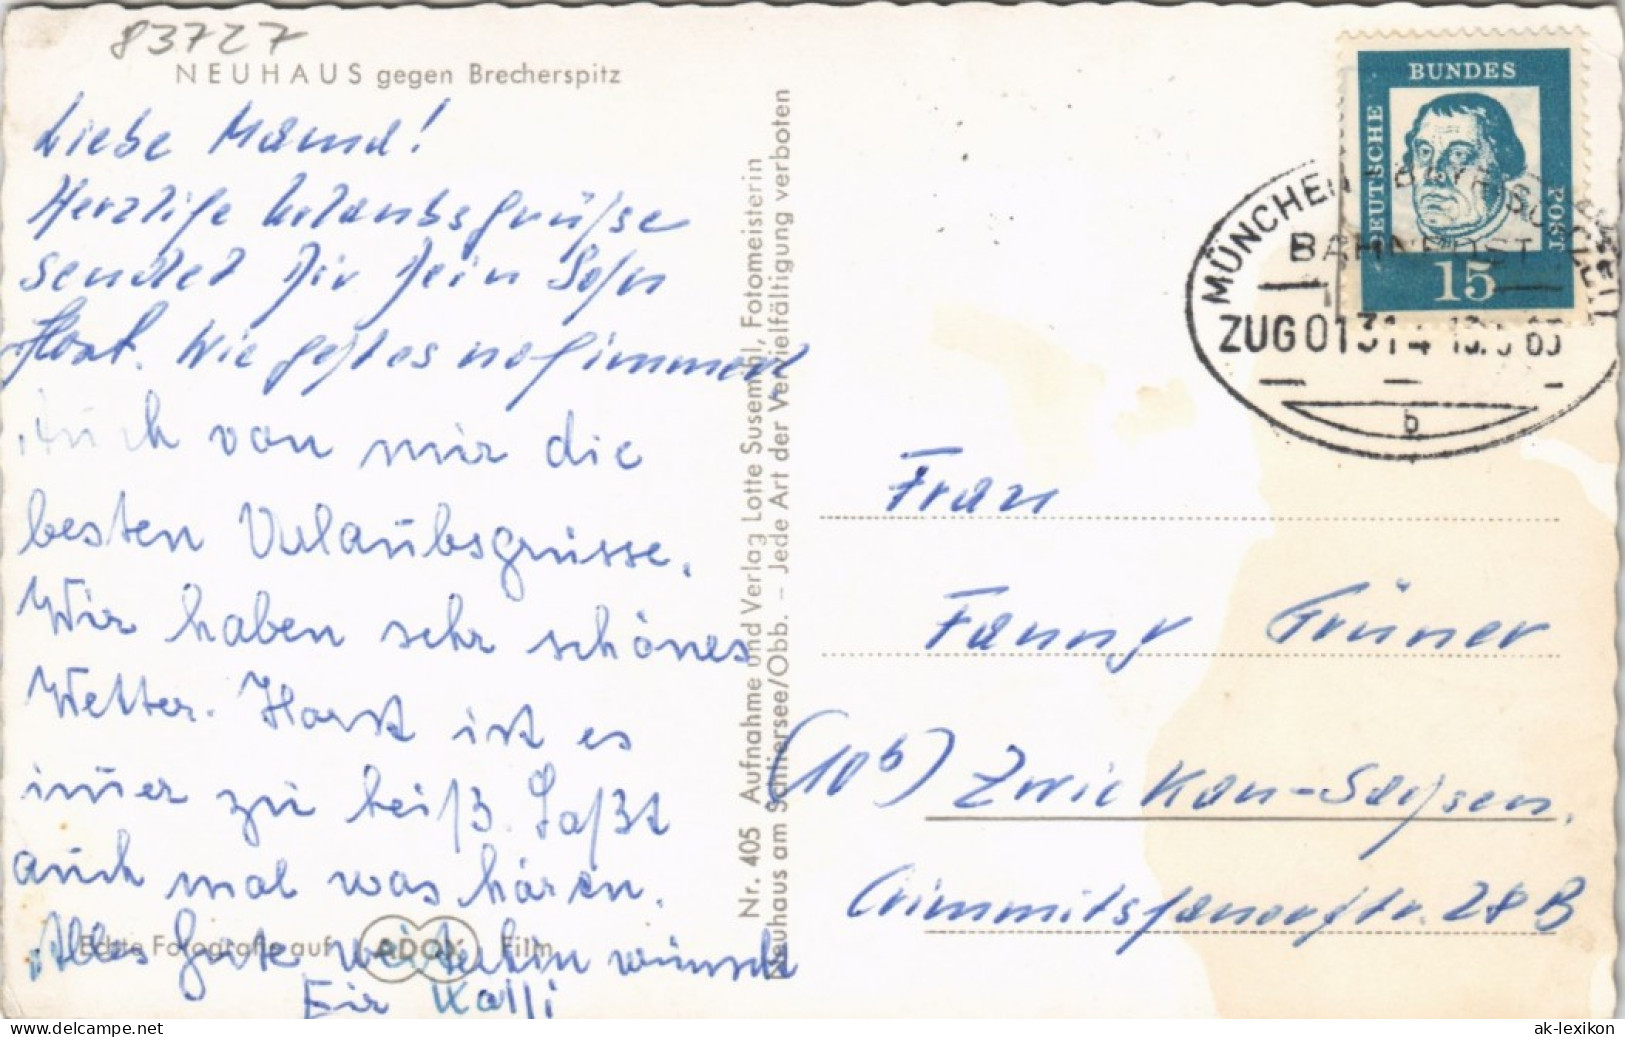 83727
NEUHAUS gegen Brecherspitz
Liebe Mama!
Herzlige Urlaubsgrüße
sendet Dir Dein Sohn
Horst. Wie geht es noch immer
Auch von mir die
besten Urlaubsgrüsse.
Wir haben sehr schönes
Wetter. Horst ist es
immer zu heiß. Laßt
auch mal was hören.
Alles Gute weiterhin wünscht
Eir Kalli
Echte Fotografie auf ADOX Film
Nr. 405 Aufnahme und Verlag Lotte Susemihl, Fotomeisterin
Neuhaus am Schliersee/Obb. – Jede Art der Vervielfältigung verboten
DEUTSCHE BUNDES POST
15
MÜNCHEN - BAYRISCHZELL
BAHNPOST
ZUG 01314
b
Frau
Fanny Grüner
(10b) Zwickau-Sachsen,
Crimmitschauerstr. 28B
www.delcampe.net
ak-lexikon